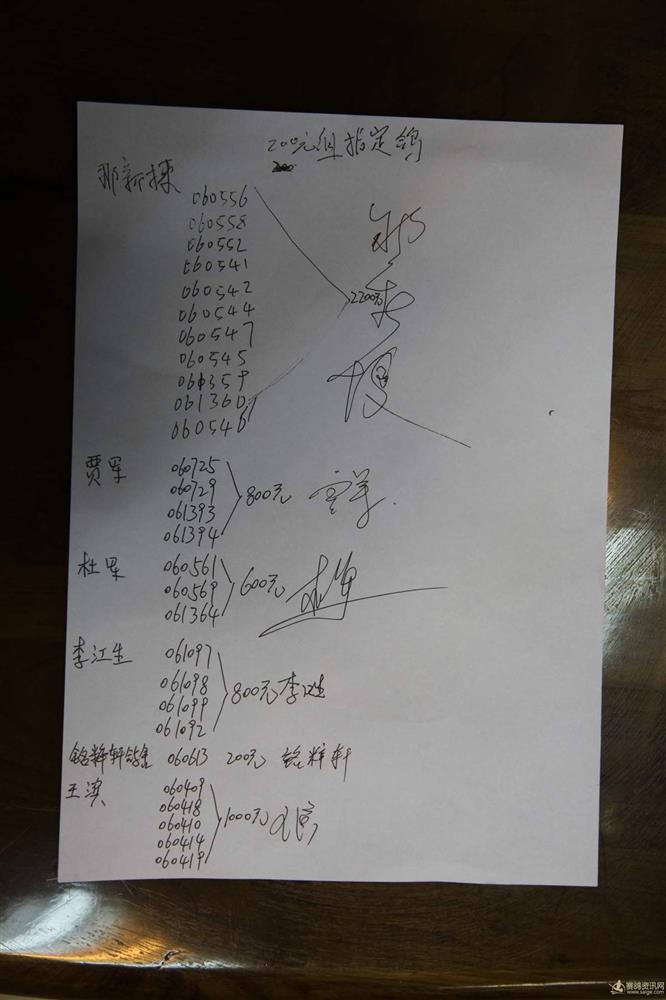 200元组指定鸽
那新栋
060556
060558
060552
060541
060542
060544
060547
060545
061359
061360
060546
2200元
贾军
060725
060729
061393
061394
800元
杜军
060561
060569
061364
600元
李江生
061097
061098
061099
061092
800元 李江生
铭粹轩鸽舍 060613 200元 铭粹轩
王滨
060409
060418
060410
060414
060419
1000元
赛鸽资讯网
www.saige.com